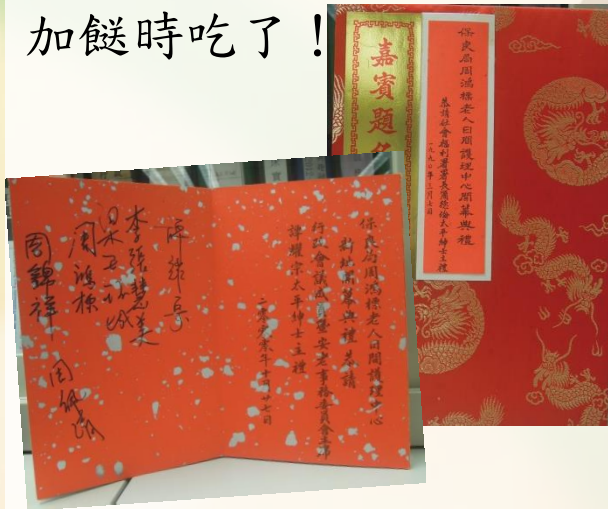 加餸時吃了！
嘉賓題名
保良局周鴻標老人日間護理中心開幕典禮
恭請社會福利署署長冼德倫太平紳士主禮
一九九〇年三月七日
保良局周鴻標老人日間護理中心
新址開幕典禮恭請
行政會議成員兼安老事務委員會主席
譚耀宗太平紳士主禮
二零零零年十月廿七日
李張慧美
周鴻標
周錦祥